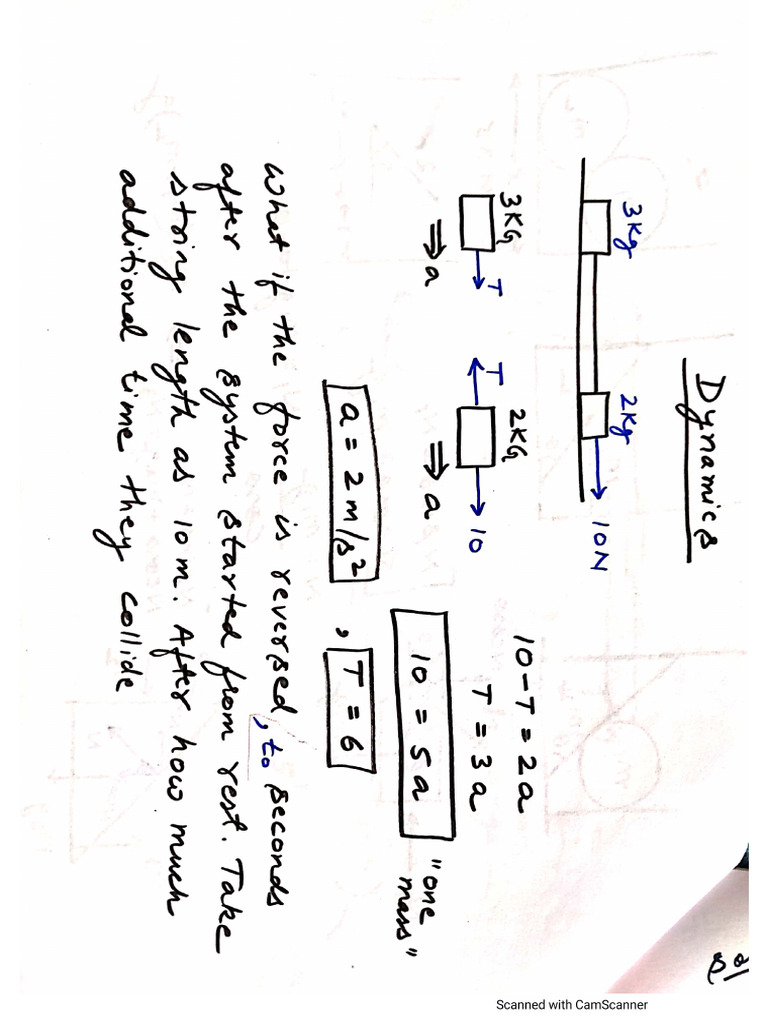 Dynamics
3Kg 2Kg 10N
3KG T T 2KG 10
⇒ a ⇒ a
10-T = 2a
T = 3a
10 = 5a "one mass"
a = 2 m/s² , T = 6
What if the force is reversed, to seconds
after the system started from rest. Take
string length as 10 m. After how much
additional time they collide
Scanned with CamScanner